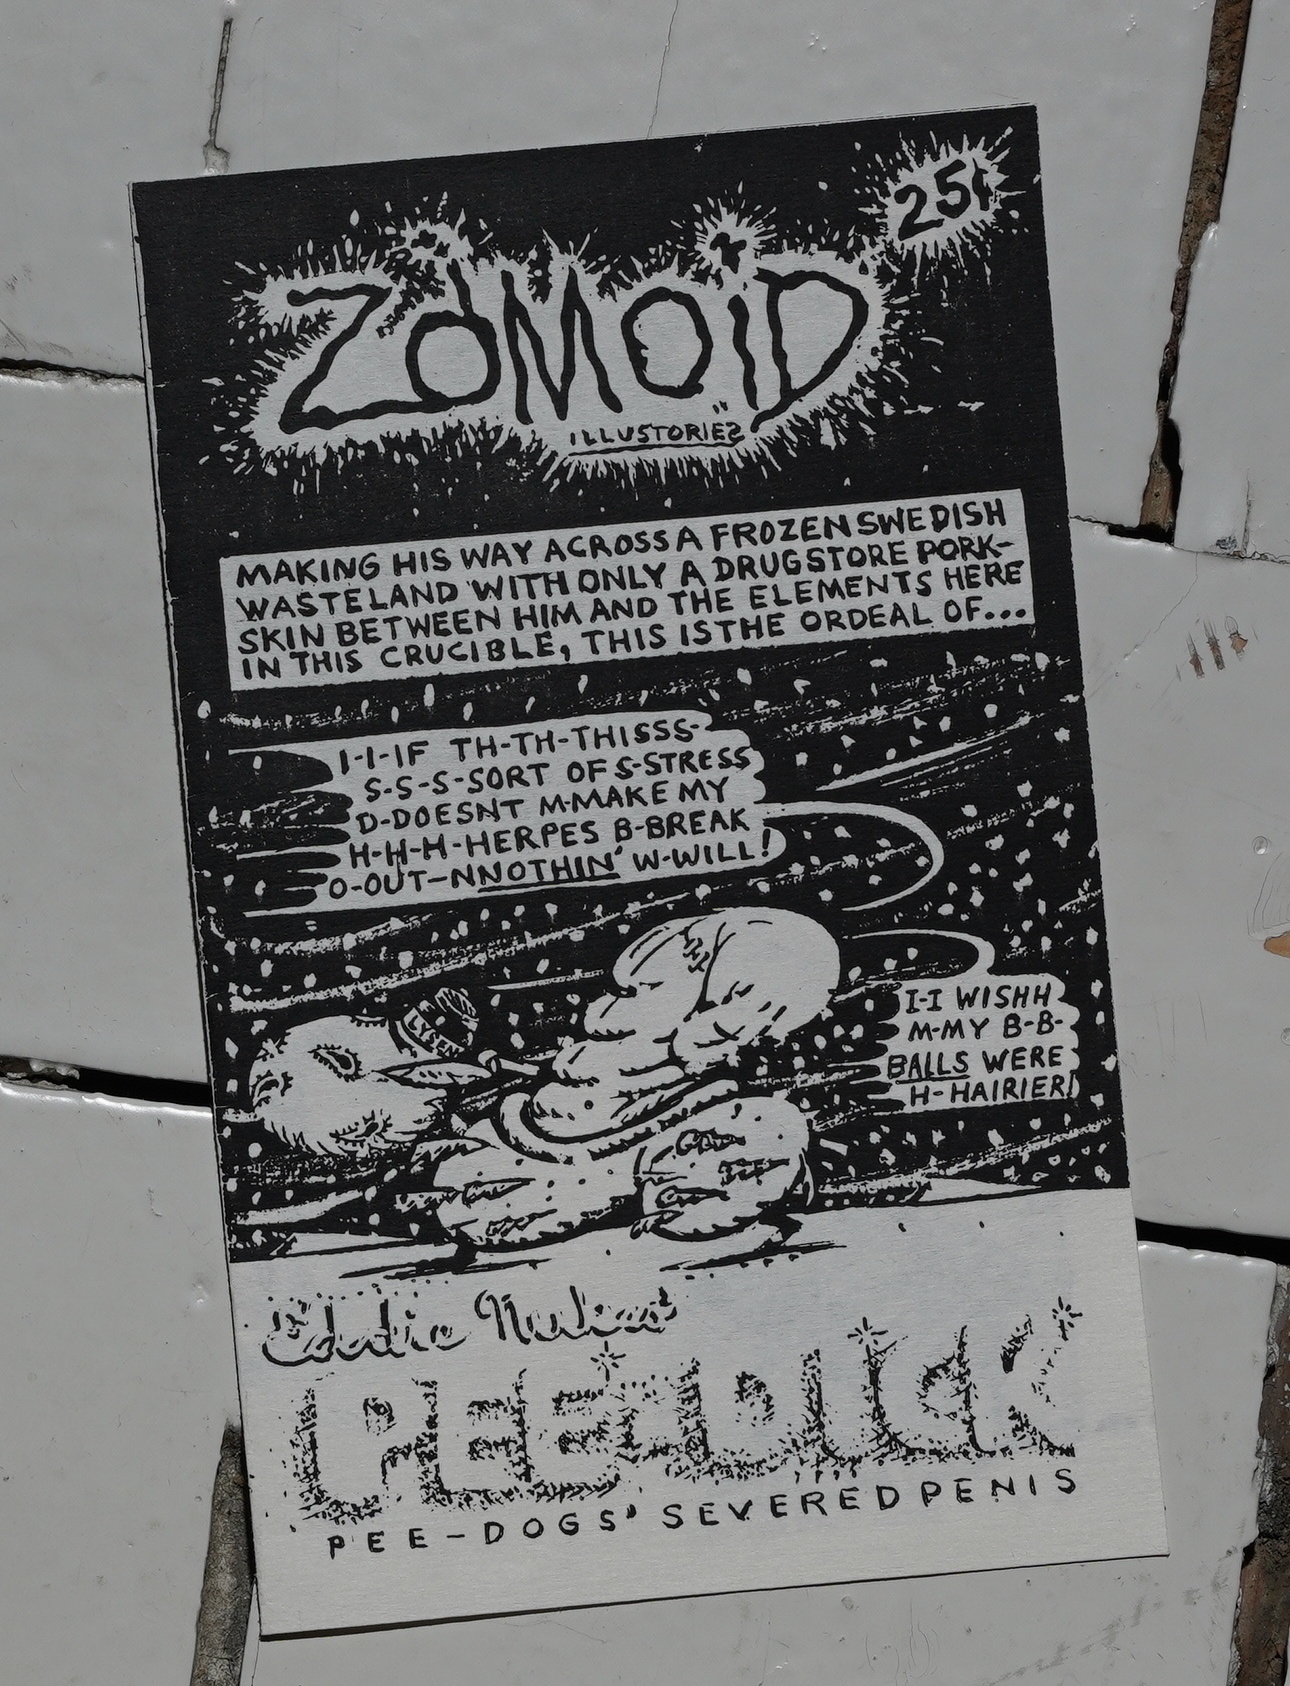 25¢
ZOMOID
ILLUSTORIES
MAKING HIS WAY ACROSS A FROZEN SWEDISH
WASTELAND WITH ONLY A DRUGSTORE PORK-
SKIN BETWEEN HIM AND THE ELEMENTS HERE
IN THIS CRUCIBLE, THIS IS THE ORDEAL OF...
I-I-IF TH-TH-THISSS-
S-S-S-SORT OF S-STRESS
D-DOESNT M-MAKE MY
H-H-H-HERPES B-BREAK
O-OUT-NNOTHIN' W-WILL!
LYSEN
I-I WISHH
M-MY B-B-
BALLS WERE
H-HAIRIER!
Eddie Nukes'
PEE-DOGS' SEVERED PENIS